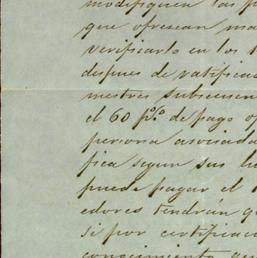 modifiquen las p
que ofrescan ma
verificarlo en los t
despues de ratificad
mestres subsecuen
el 60 p%o de pago op
persona asociada
fica segun sus lu
puede pagar el
edores tendrán q
si por certificac
conocimiento que